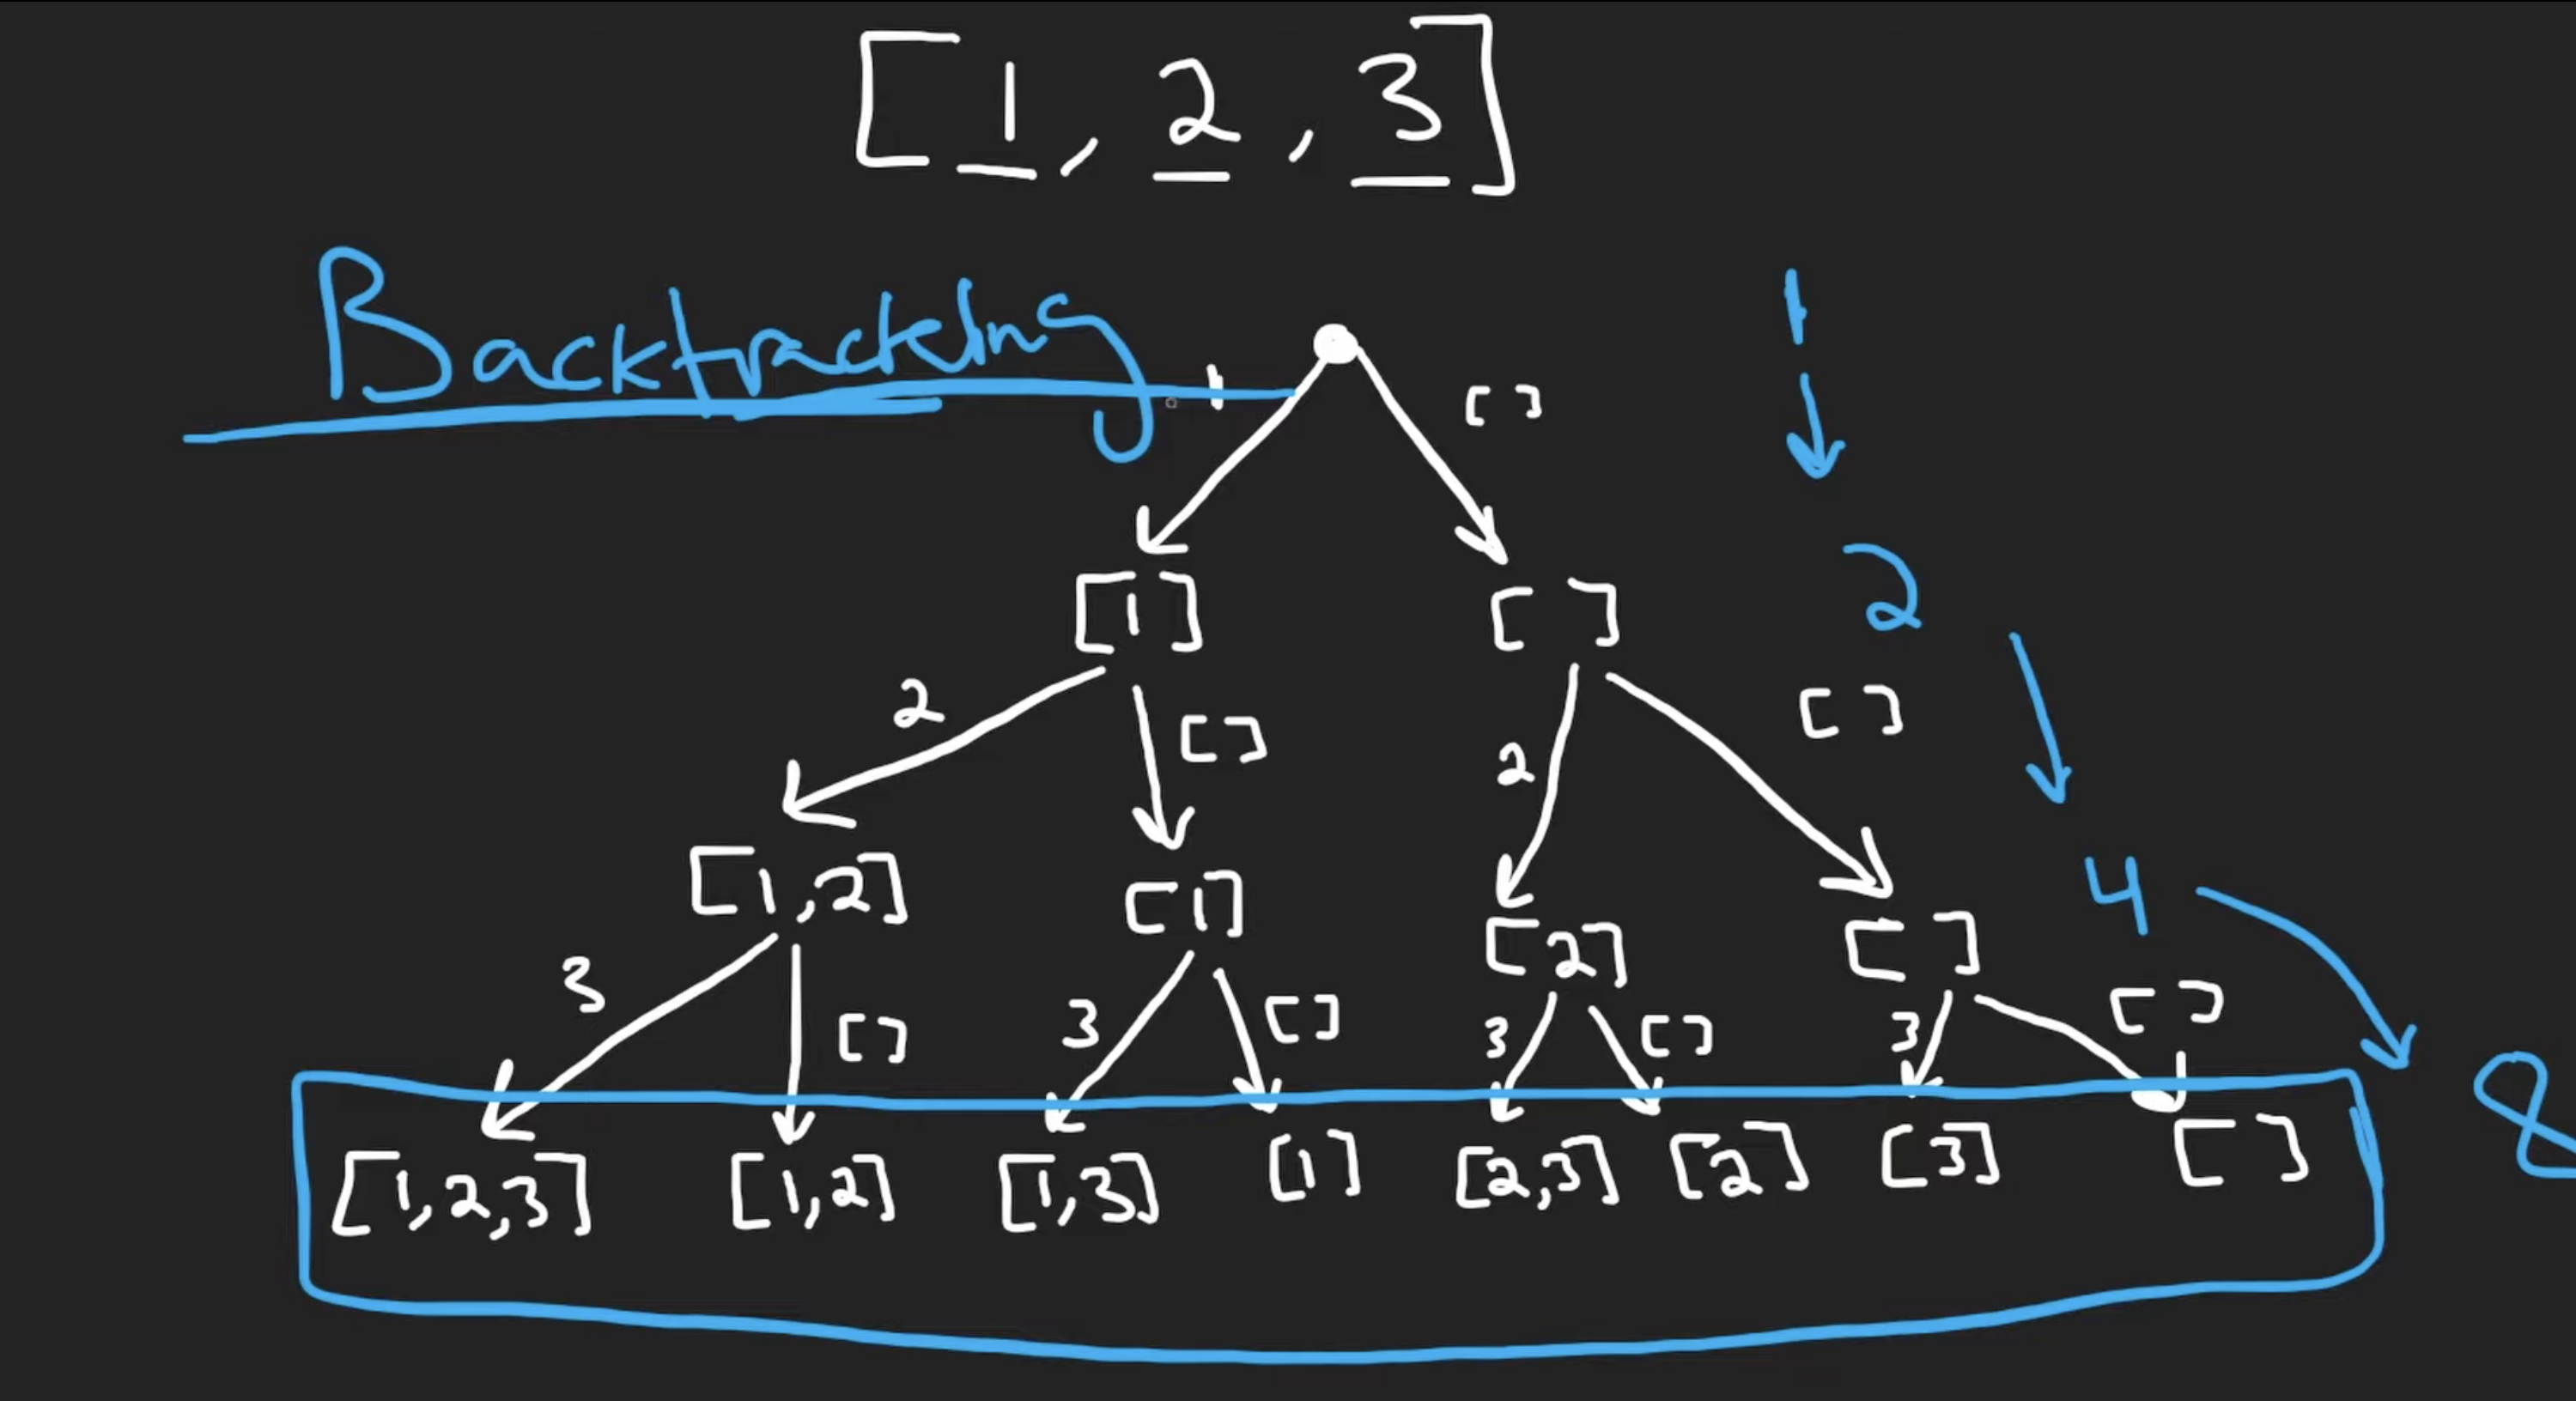 [1, 2, 3]
Backtracking
1 [ ] 1
[1] [ ] 2
2 [ ] 2 [ ]
[1,2] [1] [2] [ ] 4
3 [ ] 3 [ ] 3 [ ] 3 [ ]
[1,2,3] [1,2] [1,3] [1] [2,3] [2] [3] [ ] 8